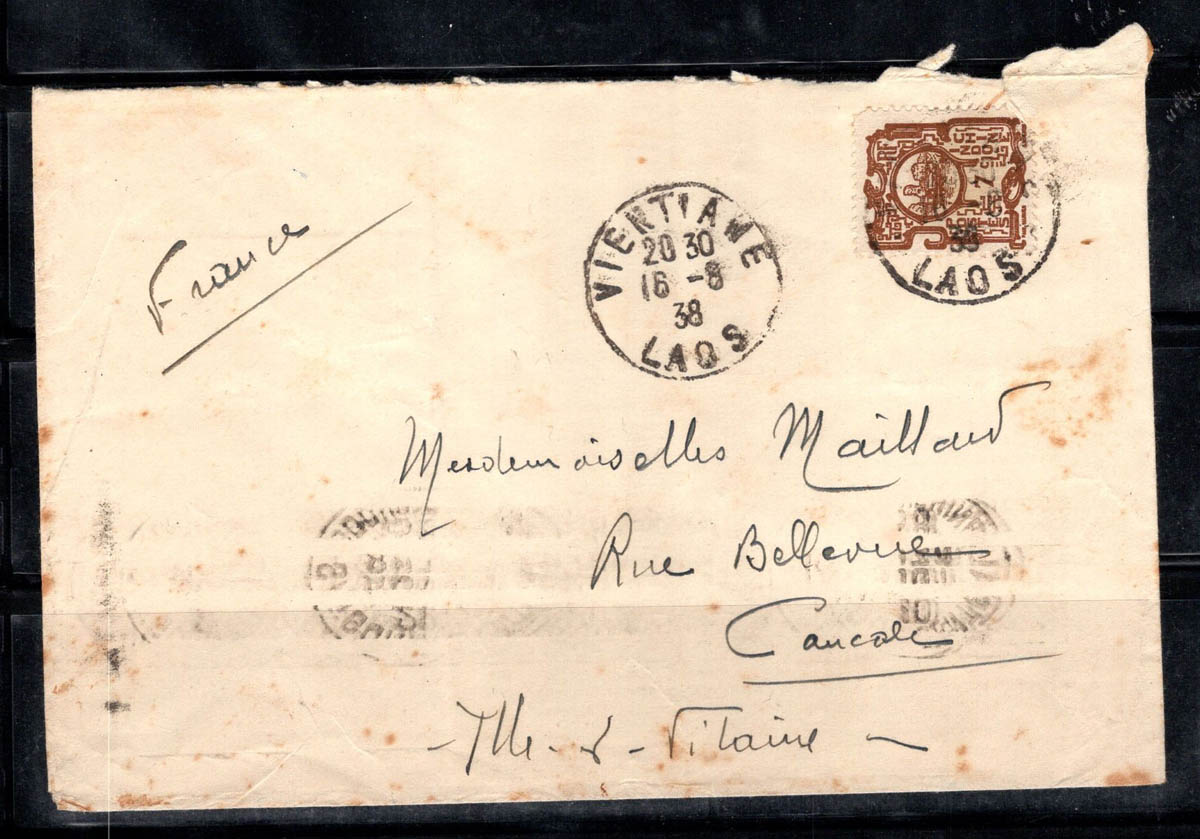 France
VIENTIANE
20 30
16 -8
38
LAOS
RF
INDOCHINE
POSTES
38
LAOS
Mesdemoiselles Maillard
Rue Bellevue
Cancale
- Ille - & - Vilaine -